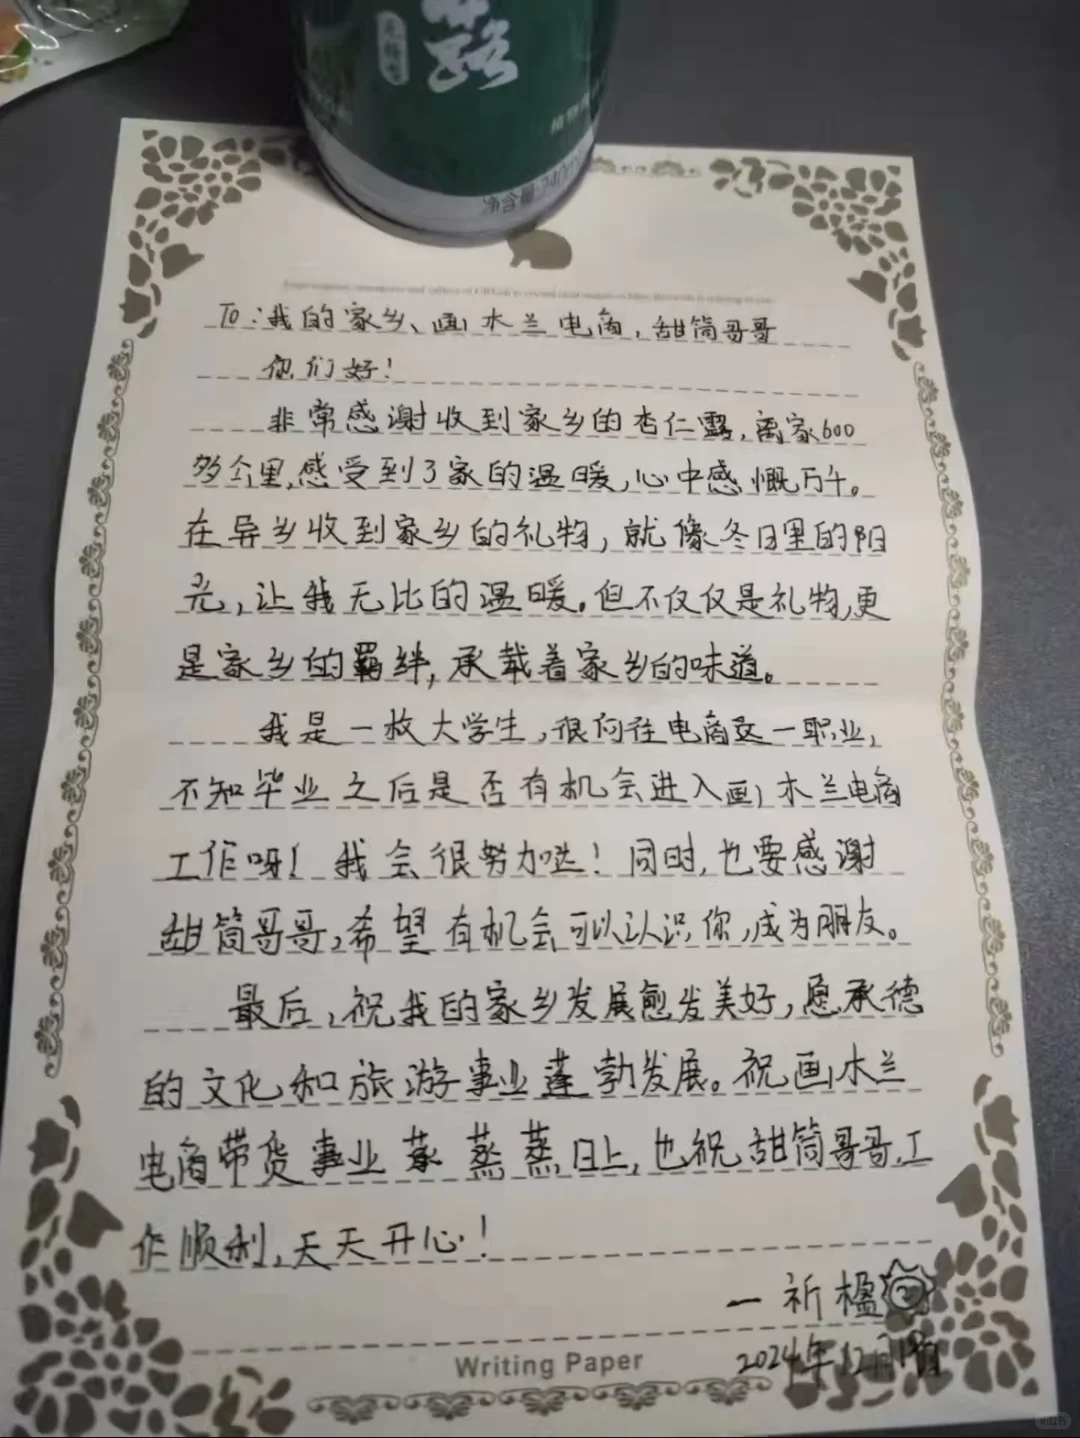 露
净含量:240
To:我的家乡、画木兰电商,甜筒哥哥
您们好!
非常感谢收到家乡的杏仁露,离家600
多公里,感受到了家的温暖,心中感慨万千。
在异乡收到家乡的礼物,就像冬日里的阳
光,让我无比的温暖。但不仅仅是礼物,更
是家乡的羁绊,承载着家乡的味道。
我是一枚大学生,很向往电商这一职业,
不知毕业之后是否有机会进入画木兰电商
工作呀!我会很努力哒!同时,也要感谢
甜筒哥哥,希望有机会可以认识你,成为朋友。
最后,祝我的家乡发展愈发美好,愿承德
的文化和旅游事业蓬勃发展。祝画木兰
电商带货事业蒸蒸日上,也祝甜筒哥哥,工
作顺利,天天开心!
一祈楹
Writing Paper
2024年12月
小红书